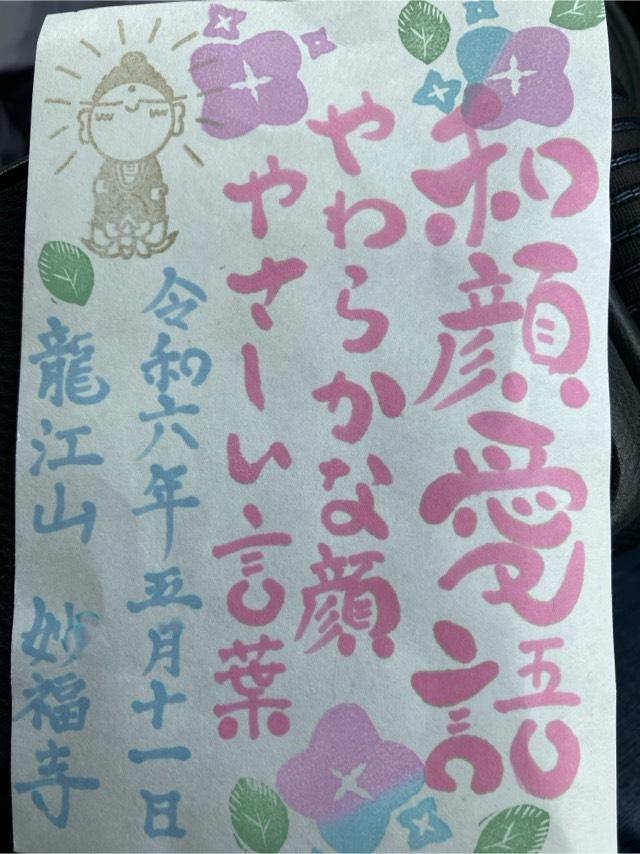 和顔愛語
やわらかな顔
やさしい言葉
令和六年五月十一日
龍江山 妙福寺